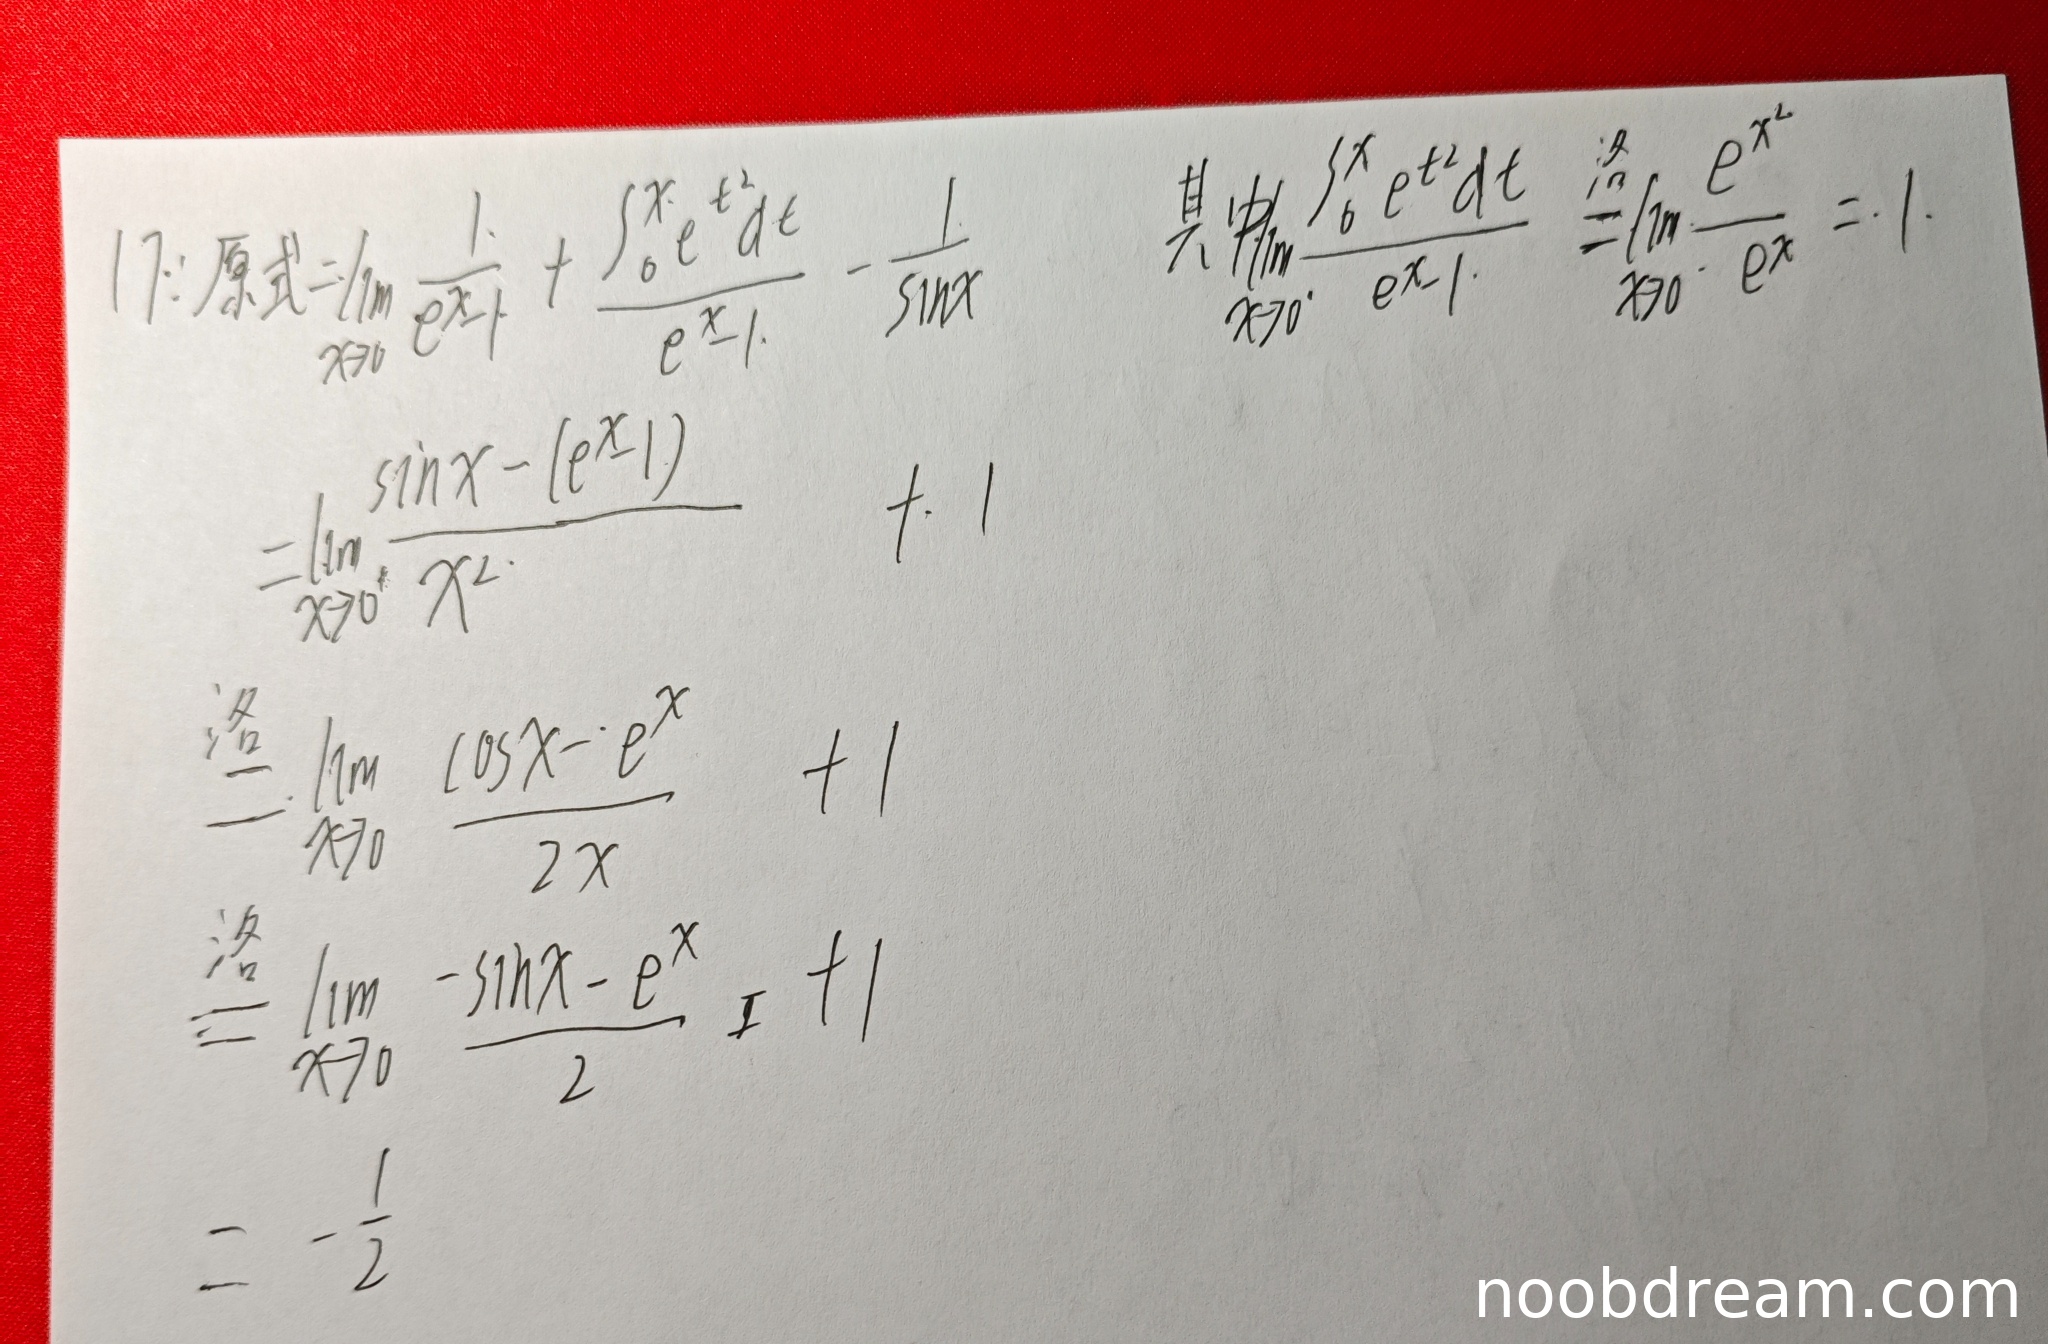 17: 原式=lim_{x→0} \frac{1}{e^x-1} + \frac{∫_0^x e^{t^2}dt}{e^x-1} - \frac{1}{sinx}
其中 lim_{x→0} \frac{∫_0^x e^{t^2}dt}{e^x-1} 洛= lim_{x→0} \frac{e^{x^2}}{e^x} = 1.
= lim_{x→0} \frac{sinx-(e^x-1)}{x^2} + 1
洛= lim_{x→0} \frac{cosx-e^x}{2x} + 1
洛= lim_{x→0} \frac{-sinx-e^x}{2} + 1
= -\frac{1}{2}
noobdream.com